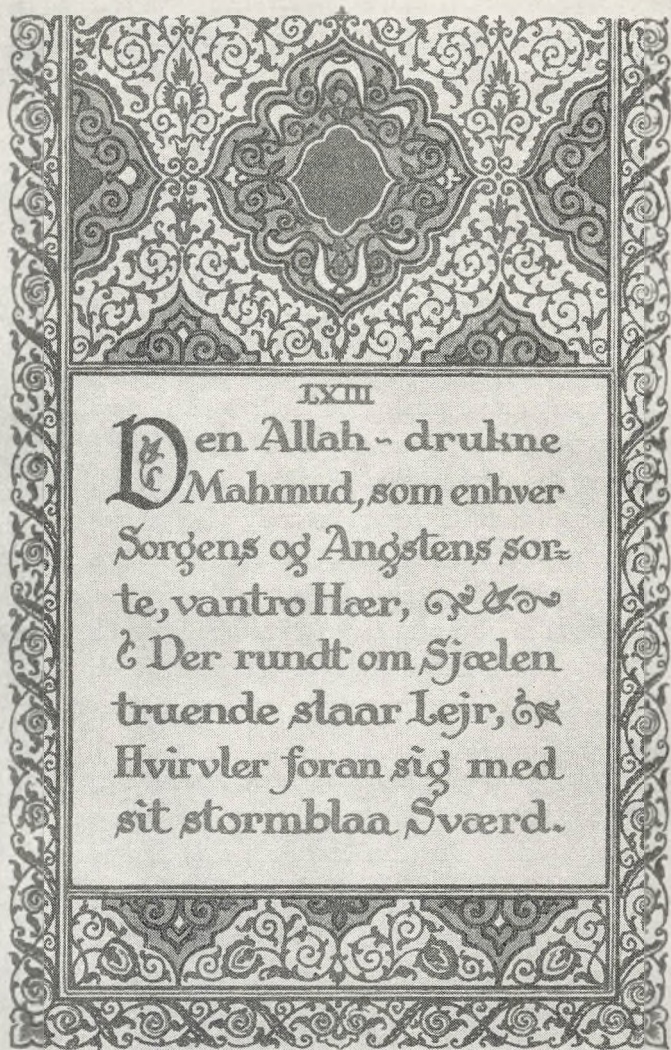 LXIII
Den Allah-drukne
Mahmud, som enhver
Sorgens og Angstens sor=
te, vantro Hær,
Der rundt om Sjælen
truende slaar Lejr,
Hvirvler foran sig med
sit stormblaa Sværd.